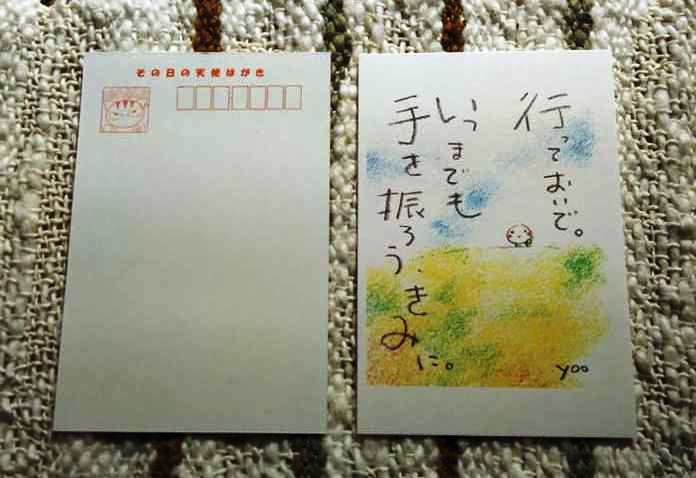 その日の天使はがき
行っておいで。
いつまでも
手を振ろう、きみに。
yoo